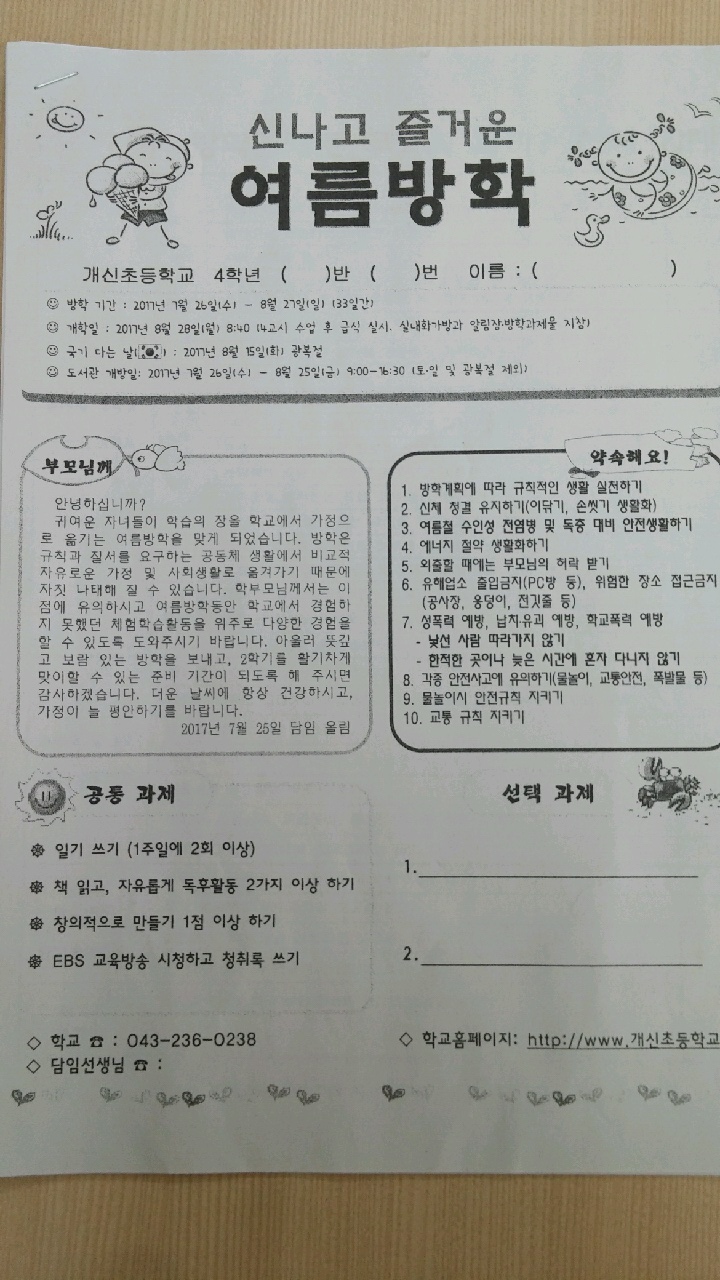 신나고 즐거운
여름방학
개신초등학교 4학년 ( )반 ( )번 이름 : ( )
☺ 방학 기간 : 2017년 7월 26일(수) - 8월 27일(일) (33일간)
☺ 개학일 : 2017년 8월 28일(월) 8:40 (4교시 수업 후 급식 실시, 실내화가방과 알림장·방학과제물 지참)
☺ 국기 다는 날( ) : 2017년 8월 15일(화) 광복절
☺ 도서관 개방일: 2017년 7월 26일(수) - 8월 25일(금) 9:00-16:30 (토·일 및 광복절 제외)
부모님께
안녕하십니까?
귀여운 자녀들이 학습의 장을 학교에서 가정으
로 옮기는 여름방학을 맞게 되었습니다. 방학은
규칙과 질서를 요구하는 공동체 생활에서 비교적
자유로운 가정 및 사회생활로 옮겨가기 때문에
자칫 나태해 질 수 있습니다. 학부모님께서는 이
점에 유의하시고 여름방학동안 학교에서 경험하
지 못했던 체험학습활동을 위주로 다양한 경험을
할 수 있도록 도와주시기 바랍니다. 아울러 뜻깊
고 보람 있는 방학을 보내고, 2학기를 활기차게
맞이할 수 있는 준비 기간이 되도록 해 주시면
감사하겠습니다. 더운 날씨에 항상 건강하시고,
가정이 늘 평안하기를 바랍니다.
2017년 7월 25일 담임 올림
약속해요!
1. 방학계획에 따라 규칙적인 생활 실천하기
2. 신체 청결 유지하기(이닦기, 손씻기 생활화)
3. 여름철 수인성 전염병 및 독충 대비 안전생활하기
4. 에너지 절약 생활화하기
5. 외출할 때에는 부모님의 허락 받기
6. 유해업소 출입금지(PC방 등), 위험한 장소 접근금지
(공사장, 웅덩이, 전깃줄 등)
7. 성폭력 예방, 납치·유괴 예방, 학교폭력 예방
- 낯선 사람 따라가지 않기
- 한적한 곳이나 늦은 시간에 혼자 다니지 않기
8. 각종 안전사고에 유의하기(물놀이, 교통안전, 폭발물 등)
9. 물놀이시 안전규칙 지키기
10. 교통 규칙 지키기
공동 과제
일기 쓰기 (1주일에 2회 이상)
책 읽고, 자유롭게 독후활동 2가지 이상 하기
창의적으로 만들기 1점 이상 하기
EBS 교육방송 시청하고 청취록 쓰기
선택 과제
1.
2.
◇ 학교 ☎ : 043-236-0238
◇ 담임선생님 ☎ :
◇ 학교홈페이지: http://www.개신초등학교